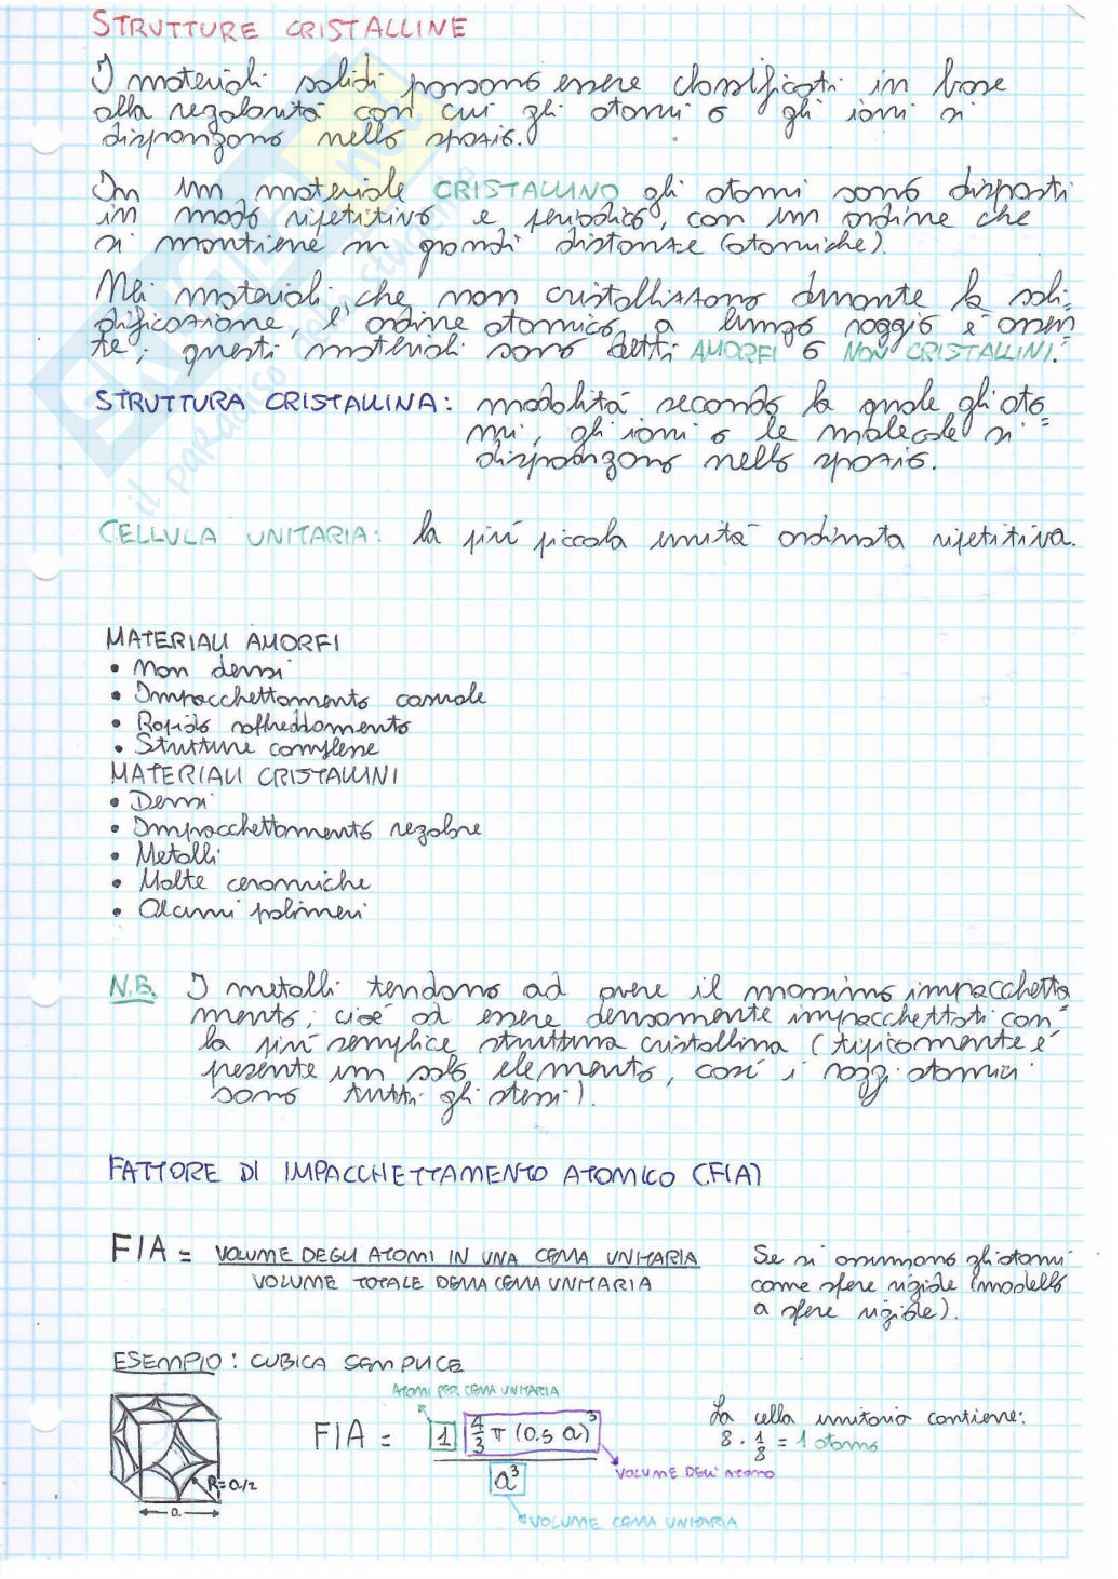 STRUTTURE CRISTALLINE
I materiali solidi possono essere classificati in base
alla regolarità con cui gli atomi o gli ioni si
dispongono nello spazio.
In un materiale CRISTALLINO gli atomi sono disposti
in modo ripetitivo e periodico, con un ordine che
si mantiene su grandi distanze (atomiche).
Nei materiali che non cristallizzano durante la soli=
dificazione, l'ordine atomico a lungo raggio è assen=
te; questi materiali sono detti AMORFI o NON CRISTALLINI.
STRUTTURA CRISTALLINA: modalità secondo la quale gli ato=
mi, gli ioni o le molecole si
dispongono nello spazio.
CELLULA UNITARIA: la più piccola unità ordinata ripetitiva.
MATERIALI AMORFI
• Non densi
• Impacchettamento casuale
• Rapido raffreddamento
• Strutture complesse
MATERIALI CRISTALLINI
• Densi
• Impacchettamento regolare
• Metalli
• Molte ceramiche
• Alcuni polimeri
N.B. I metalli tendono ad avere il massimo impacchetta=
mento, cioè ad essere densamente impacchettati con
la più semplice struttura cristallina (tipicamente è
presente un solo elemento, così i raggi atomici
sono tutti gli stessi).
FATTORE DI IMPACCHETTAMENTO ATOMICO (FIA)
FIA = VOLUME DEGLI ATOMI IN UNA CELLA UNITARIA
VOLUME TOTALE DELLA CELLA UNITARIA
Se si assumono gli atomi
come sfere rigide (modello
a sfere rigide).
ESEMPIO: CUBICA SEMPLICE
ATOMI PER CELLA UNITARIA
FIA = 1 4/3 π (0.5 a)³
a³
VOLUME DELL'ATOMO
VOLUME CELLA UNITARIA
La cella unitaria contiene:
8 · 1/8 = 1 atomo
R=a/2
a